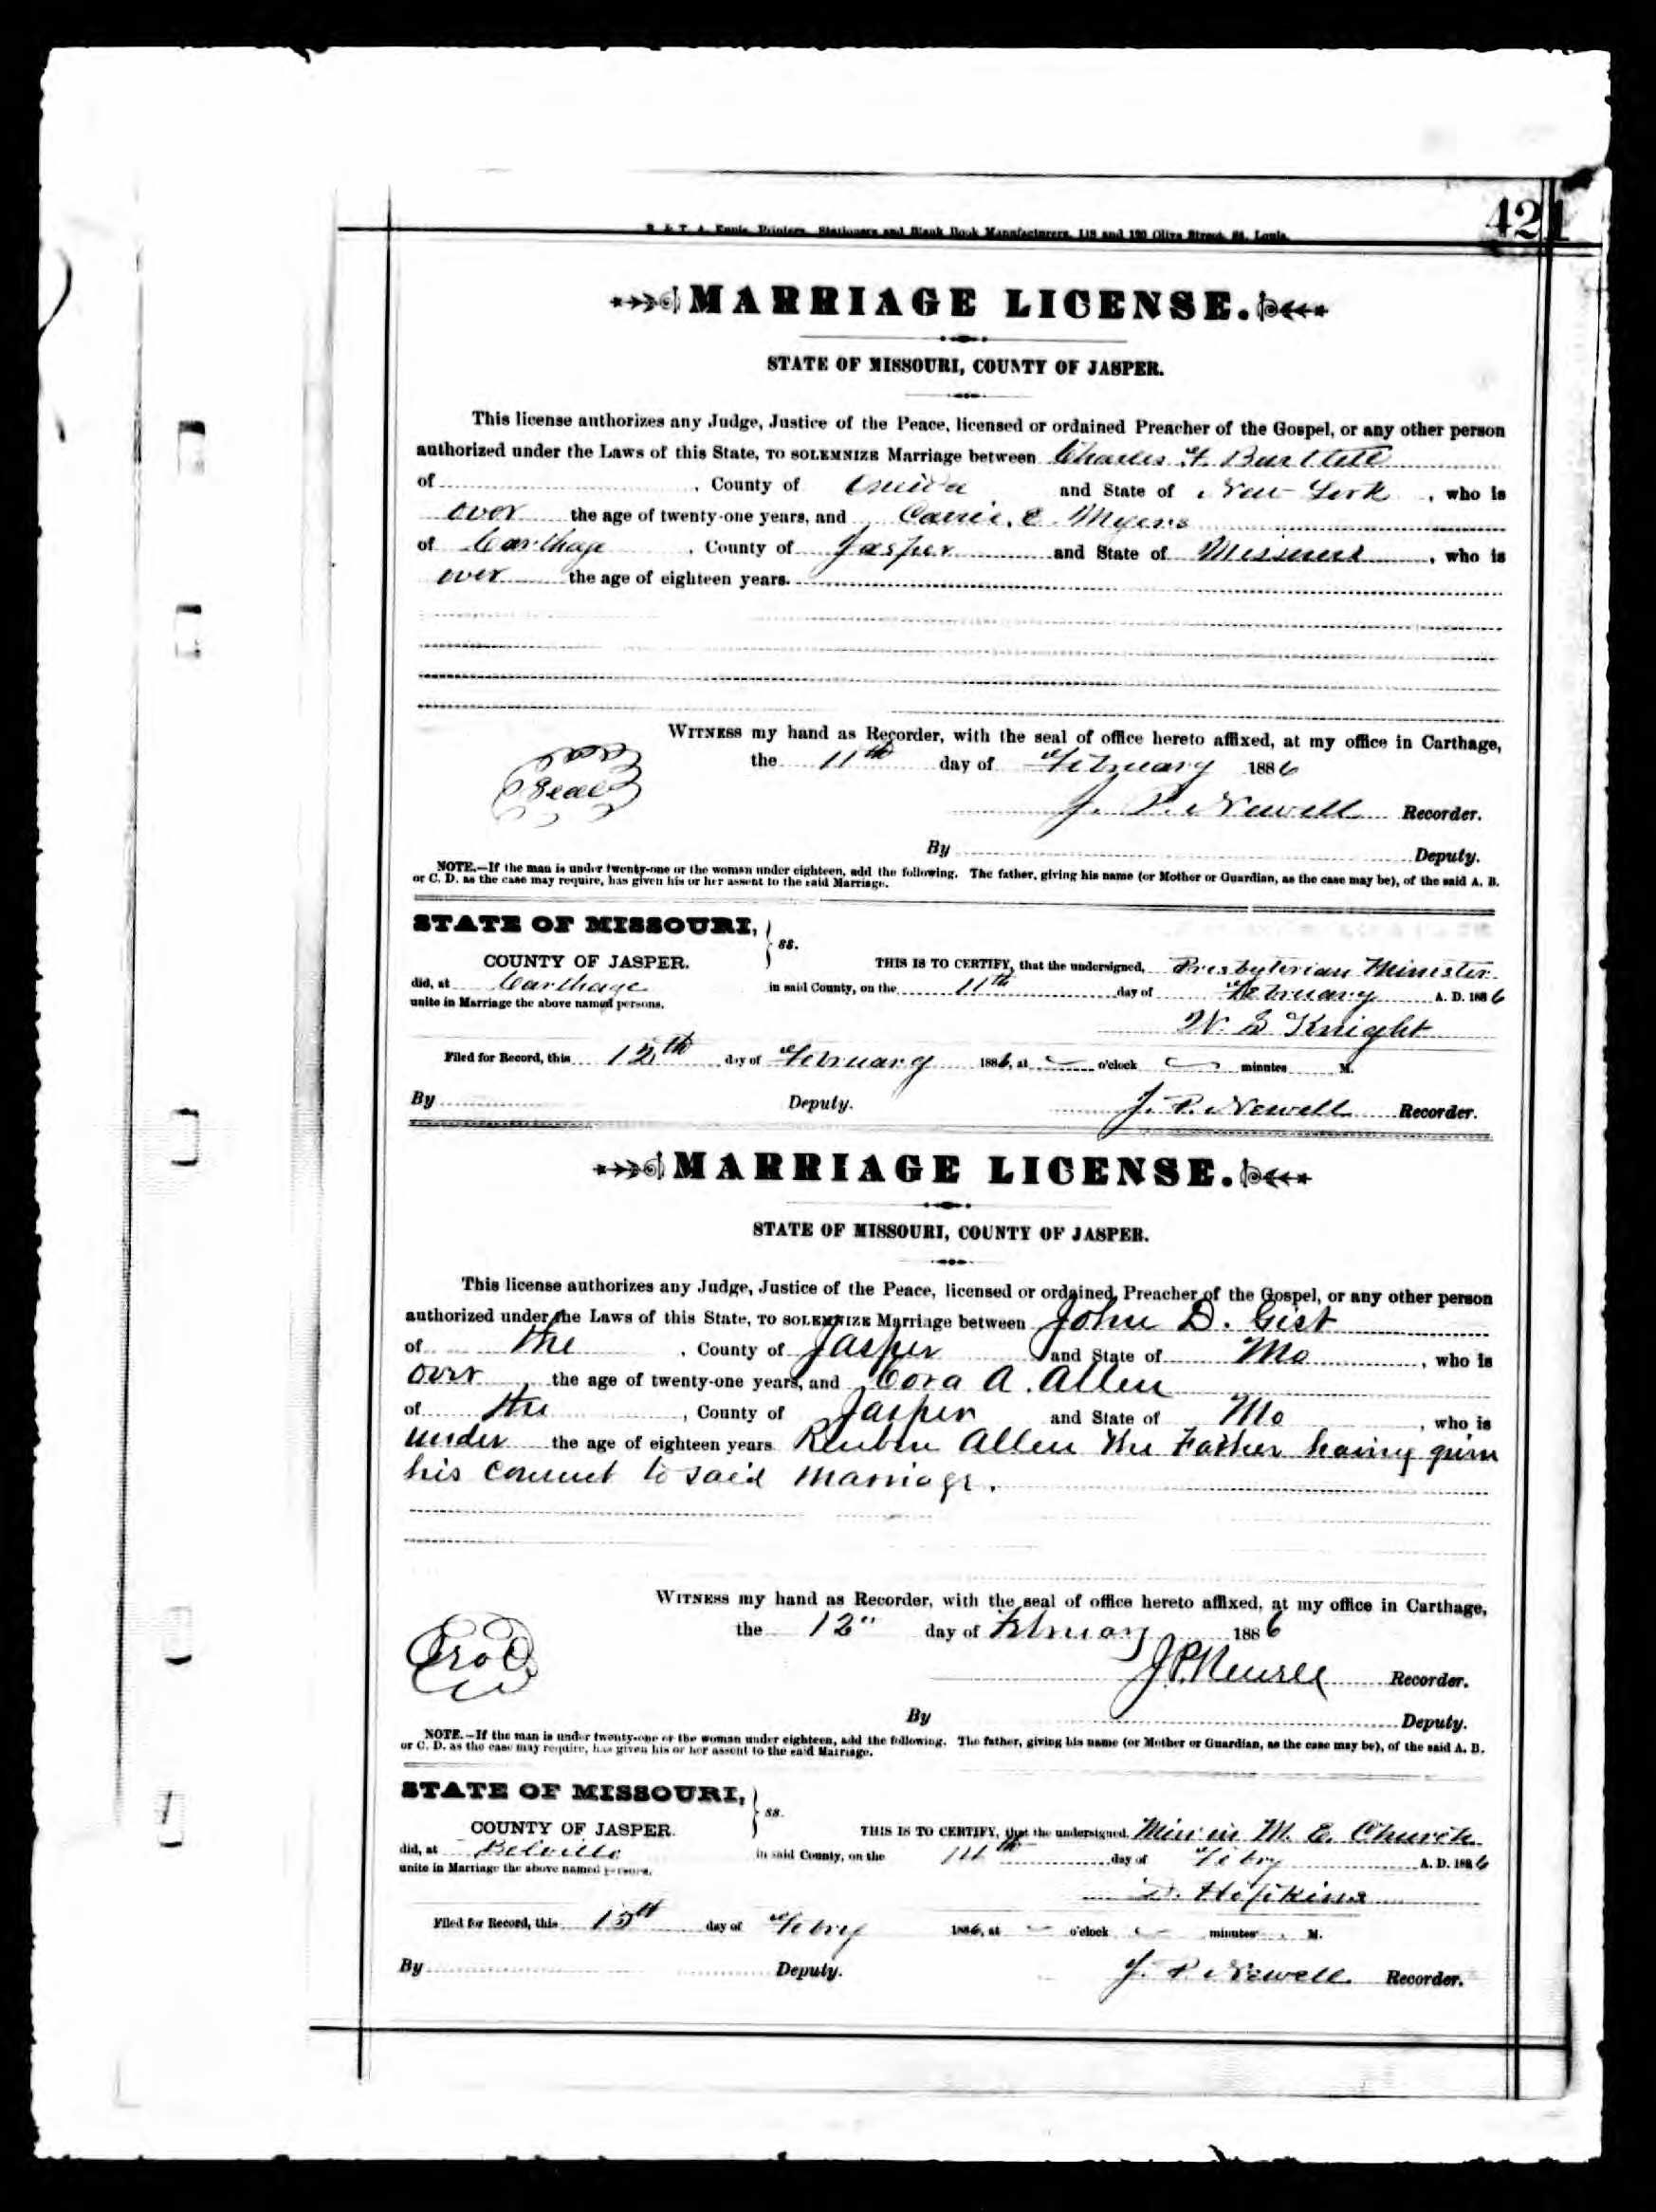 421
R. & T. A. Ennis, Printers, Stationers and Blank Book Manufacturers, 118 and 120 Olive Street, St. Louis.
MARRIAGE LICENSE.
STATE OF MISSOURI, COUNTY OF JASPER.
This license authorizes any Judge, Justice of the Peace, licensed or ordained Preacher of the Gospel, or any other person
authorized under the Laws of this State, TO SOLEMNIZE Marriage between Charles F. Burtlett
of , County of Oneida and State of New York , who is
over the age of twenty-one years, and Carrie. E. Myers
of Carthage , County of Jasper and State of Missouri , who is
over the age of eighteen years.
WITNESS my hand as Recorder, with the seal of office hereto affixed, at my office in Carthage,
Seal the 11th day of February 1886
J. P. Newell Recorder.
By Deputy.
NOTE.—If the man is under twenty-one or the woman under eighteen, add the following. The father, giving his name (or Mother or Guardian, as the case may be), of the said A. B.
or C. D. as the case may require, has given his or her assent to the said Marriage.
STATE OF MISSOURI, } ss.
COUNTY OF JASPER. THIS IS TO CERTIFY, that the undersigned, Presbyterian Minister
did, at Carthage in said County, on the 11th day of February A. D. 1886
unite in Marriage the above named persons.
W. S Knight
Filed for Record, this 12th day of February 1886, at o'clock minutes M.
By Deputy. J. P. Newell Recorder.
MARRIAGE LICENSE.
STATE OF MISSOURI, COUNTY OF JASPER.
This license authorizes any Judge, Justice of the Peace, licensed or ordained Preacher of the Gospel, or any other person
authorized under the Laws of this State, TO SOLEMNIZE Marriage between John D. Gist
of the , County of Jasper and State of Mo , who is
over the age of twenty-one years, and Cora A. Allen
of the , County of Jasper and State of Mo , who is
under the age of eighteen years Reuben Allen the Father having given
his consent to said marriage.
WITNESS my hand as Recorder, with the seal of office hereto affixed, at my office in Carthage,
the 12" day of February 1886
J.P. Newell Recorder.
By Deputy.
NOTE.—If the man is under twenty-one or the woman under eighteen, add the following. The father, giving his name (or Mother or Guardian, as the case may be), of the said A. B.
or C. D. as the case may require, has given his or her assent to the said Marriage.
STATE OF MISSOURI, } ss.
COUNTY OF JASPER. THIS IS TO CERTIFY, that the undersigned, Min in M. E. Church
did, at Belville in said County, on the 14th day of Febry A. D. 1886
unite in Marriage the above named persons.
D. Hopkins
Filed for Record, this 15th day of Febry 1886, at o'clock minutes M.
By Deputy. J. P. Newell Recorder.